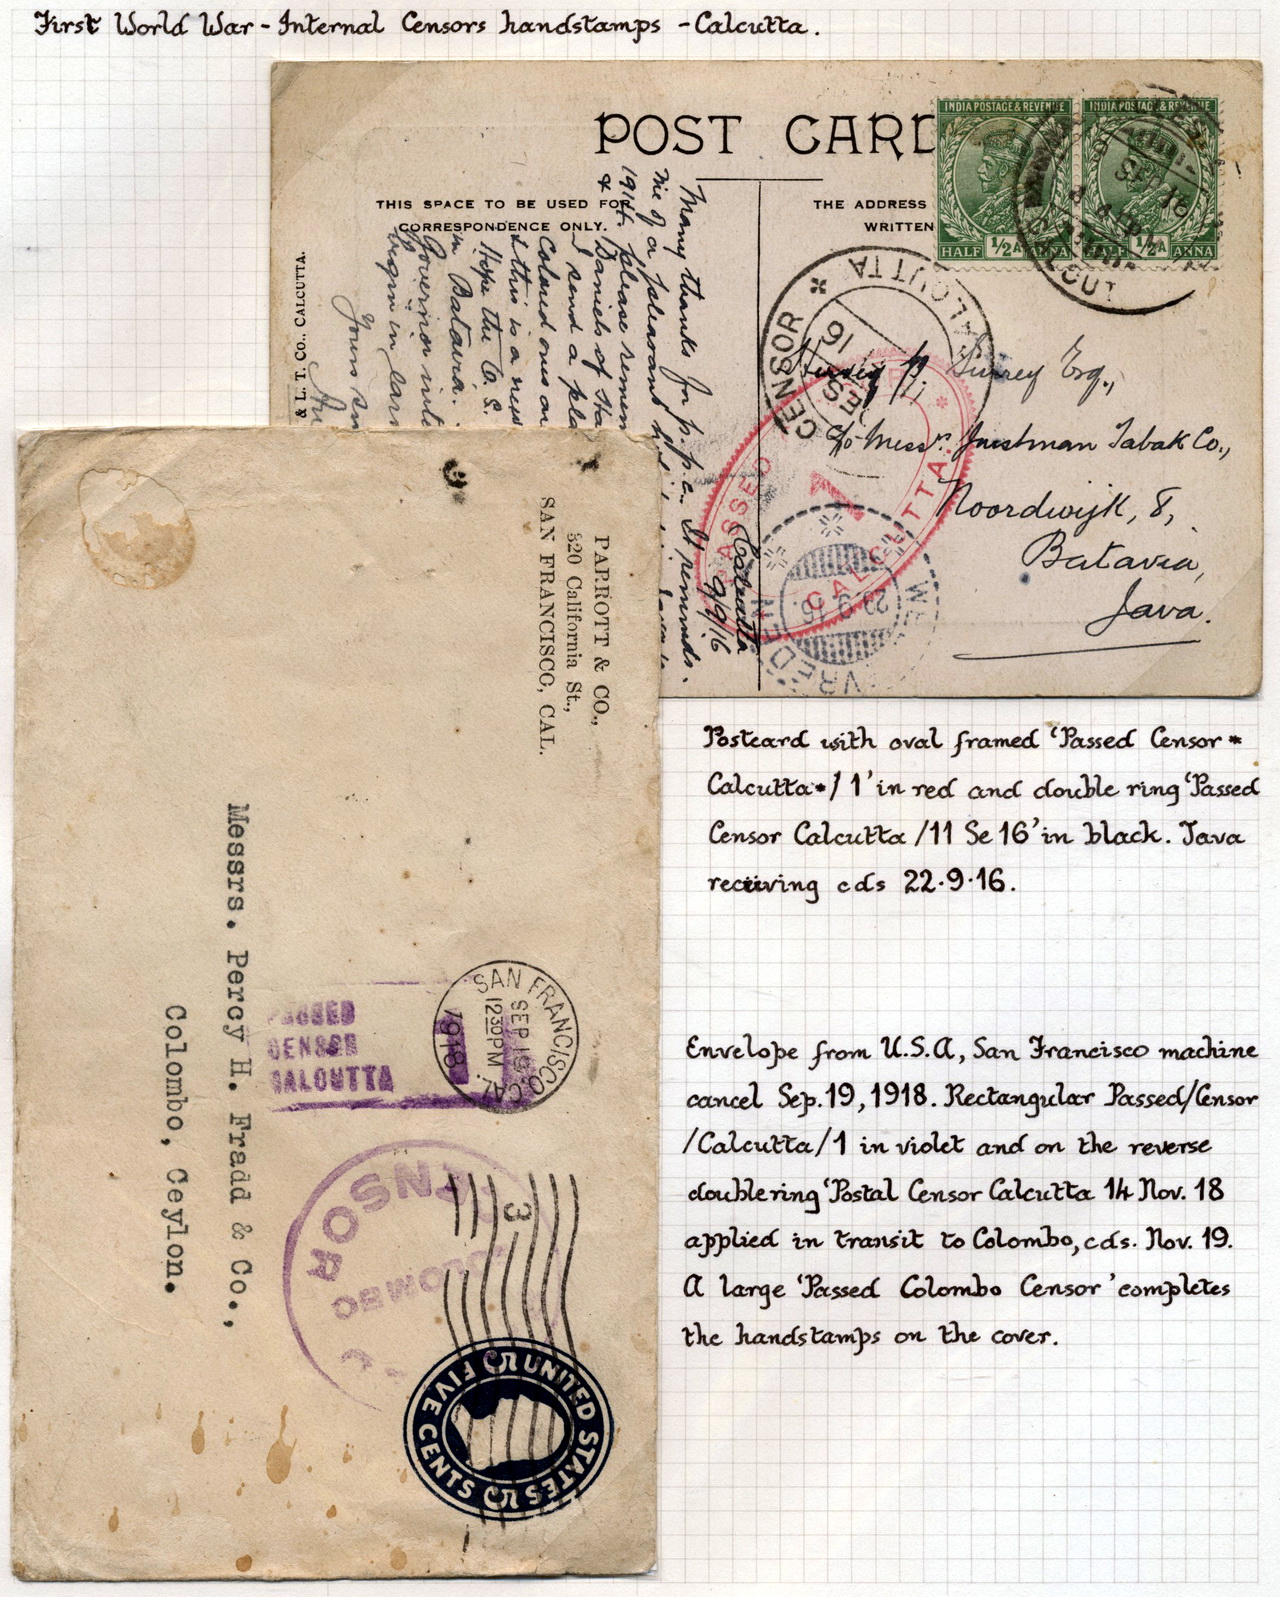 First World War - Internal Censors handstamps - Calcutta.
POST CARD
THIS SPACE TO BE USED FOR
CORRESPONDENCE ONLY.
THE ADDRESS
WRITTEN
& L. T. CO., CALCUTTA.
INDIA POSTAGE & REVENUE
HALF 1/2 A ANNA
INDIA POSTAGE & REVENUE
HALF 1/2 A ANNA
Many thanks for p.p.c. It reminds
me of a pleasant
1914. please remem
& Daniels of
I send a
Colored ons on
& this is a
Hope the
in Batavia.
Governor
Yours
Calcutta
9/9/16
CENSOR CALCUTTA
SE
16
PASSED
CALCUTTA
1
Surrey Esq.,
c/o Messrs. Tabak Co.,
Noordwijk, 8,
Batavia,
Java.
Postcard with oval framed 'Passed Censor *
Calcutta * / 1' in red and double ring 'Passed
Censor Calcutta / 11 Se 16' in black. Java
receiving cds 22.9.16.
PARROTT & CO.,
320 California St.,
SAN FRANCISCO, CAL.
SAN FRANCISCO, CAL.
SEP 19
1230 PM
1918
PASSED
CENSOR
CALCUTTA
CENSOR
COLOMBO
3
UNITED STATES
FIVE CENTS
Messrs. Percy H. Fradd & Co.,
Colombo, Ceylon.
Envelope from U.S.A, San Francisco machine
cancel Sep. 19, 1918. Rectangular Passed/Censor
/Calcutta/1 in violet and on the reverse
double ring 'Postal Censor Calcutta 14 Nov. 18
applied in transit to Colombo, cds. Nov. 19.
A large 'Passed Colombo Censor' completes
the handstamps on the cover.